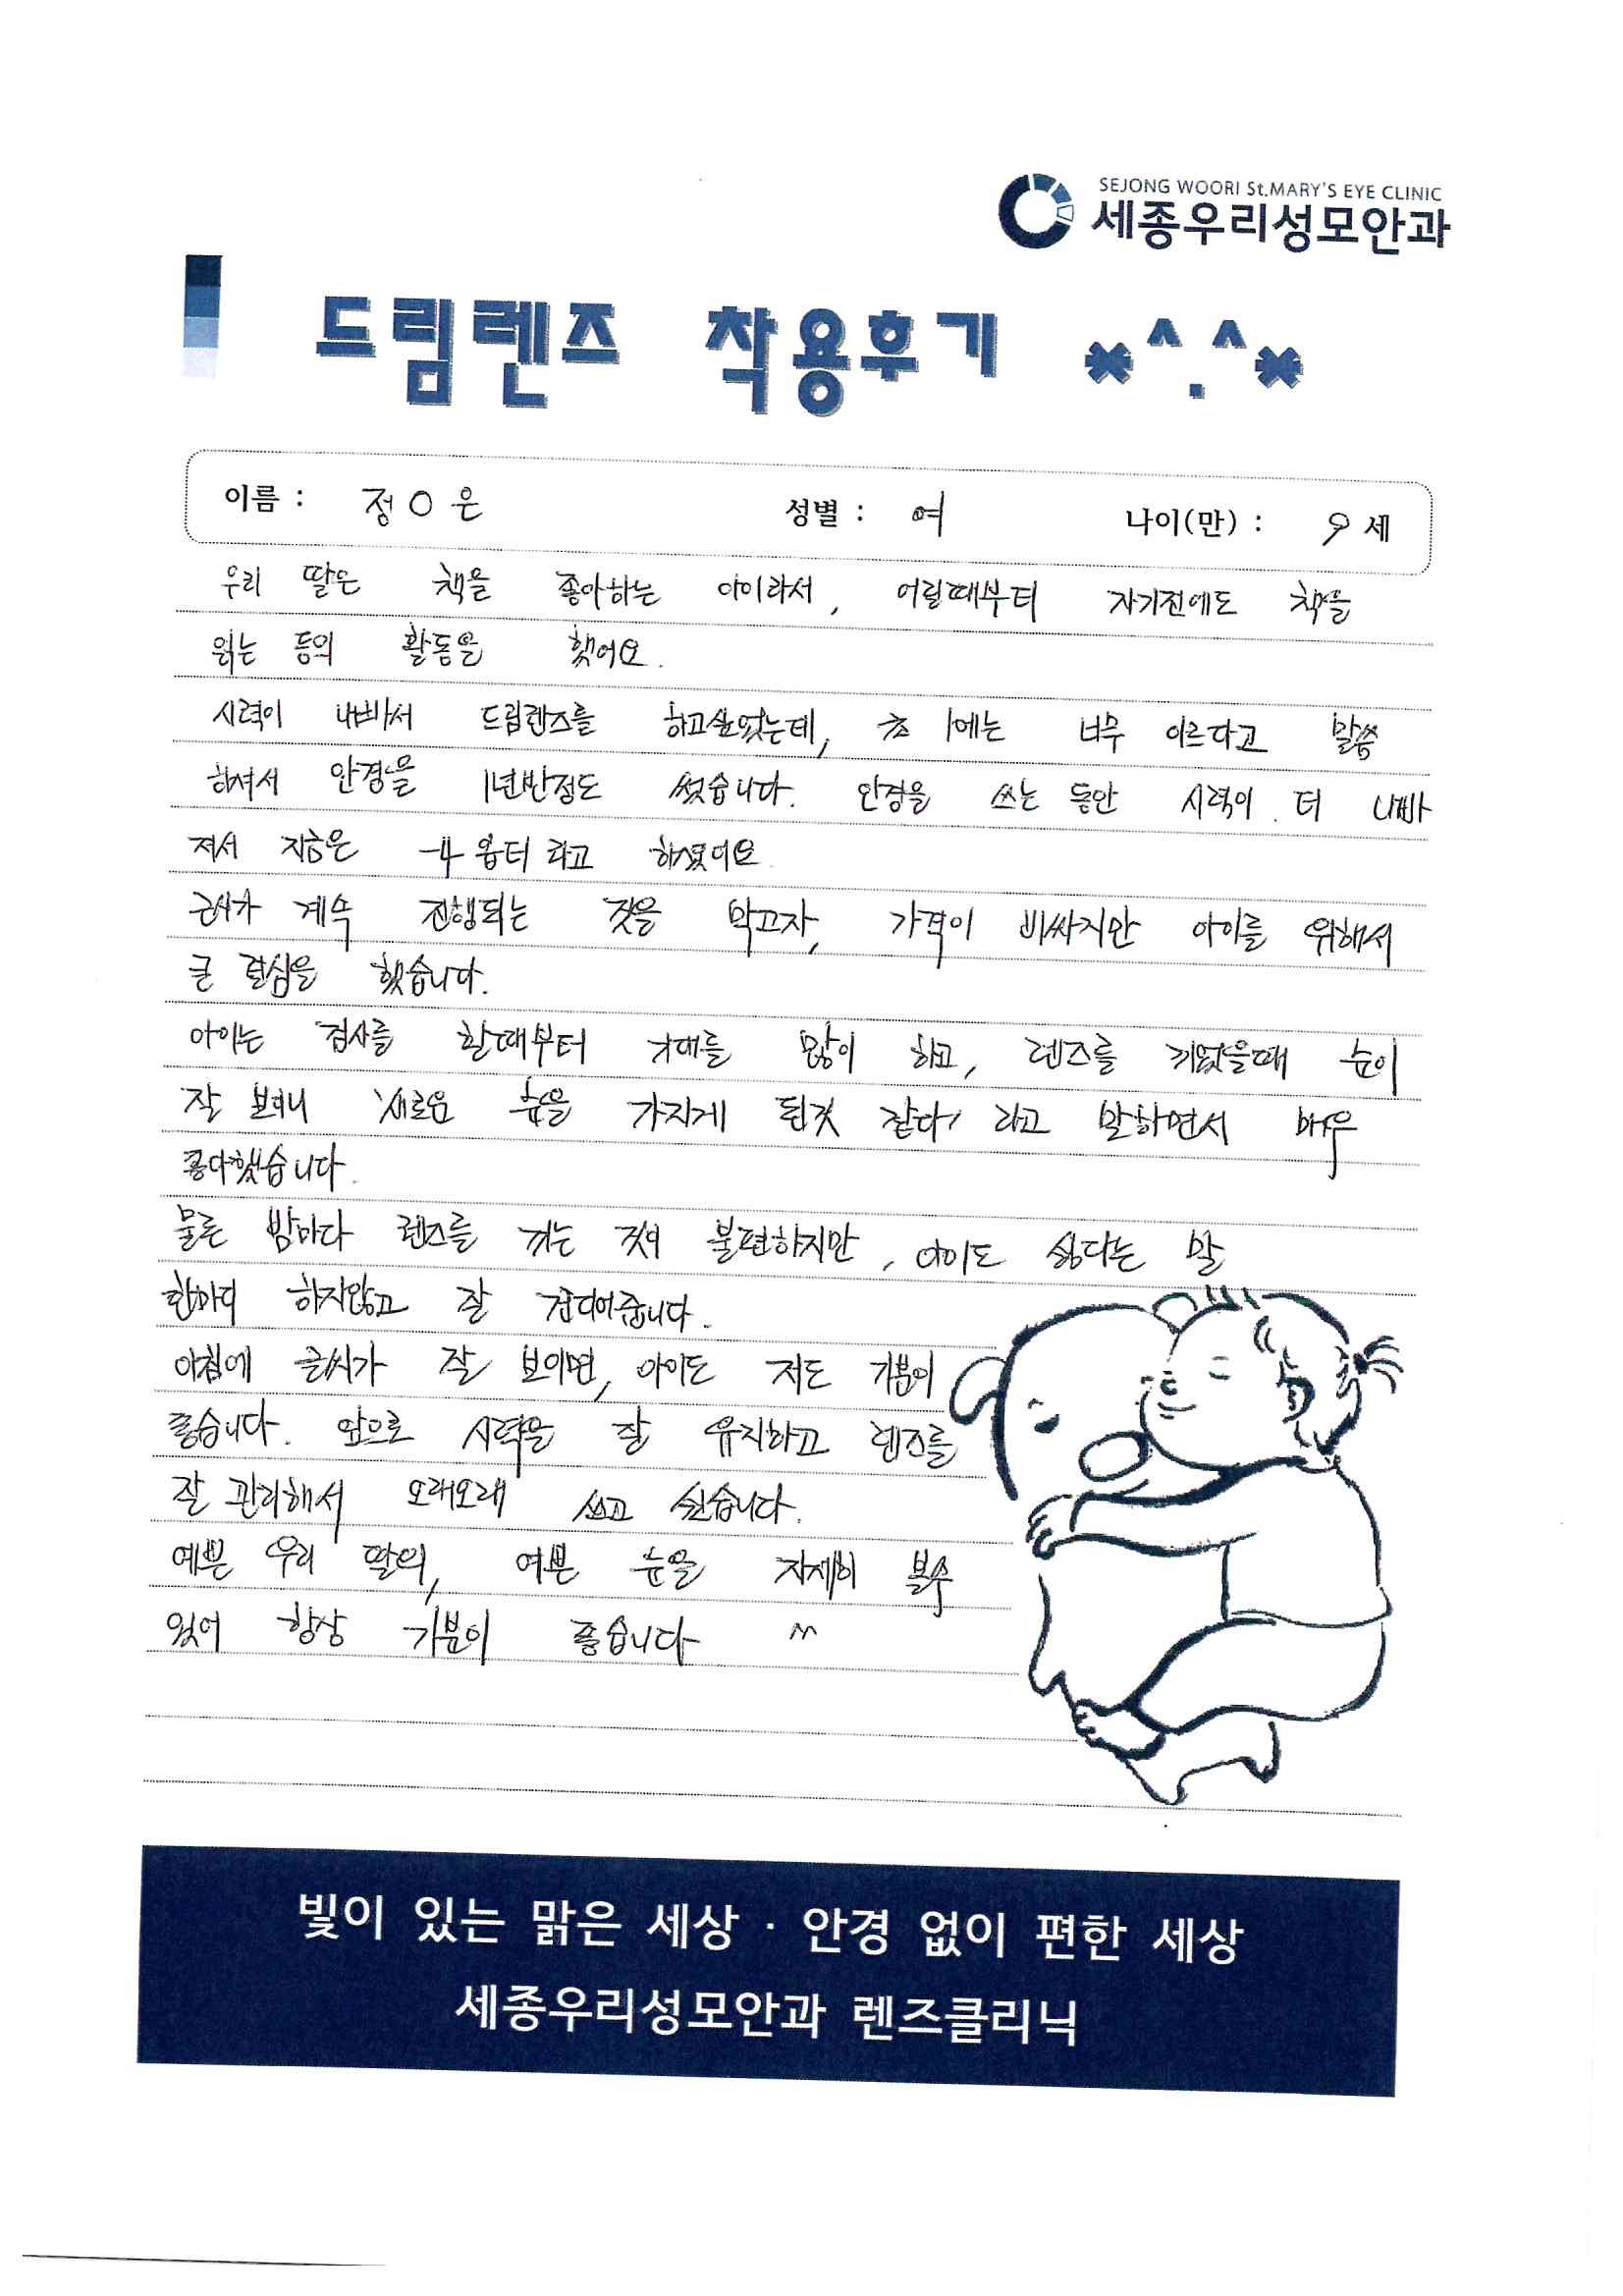 SEJONG WOORI St.MARY'S EYE CLINIC
세종우리성모안과
드림렌즈 착용후기 *^.^*
이름 : 정○은 성별 : 여 나이(만) : 9 세
우리 딸은 책을 좋아하는 아이라서, 어릴때부터 자기전에도 책을
읽는 등의 활동을 했어요.
시력이 나빠서 드림렌즈를 하고싶었는데, 초 1에는 너무 이르다고 말씀
하셔서 안경을 1년반정도 썼습니다. 안경을 쓰는 동안 시력이 더 나빠
져서 지금은 -4 옵터라고 하셨어요
근시가 계속 진행되는 것을 막고자, 가격이 비싸지만 아이를 위해서
큰 결심을 했습니다.
아이는 검사를 할때부터 기대를 많이 하고, 렌즈를 끼웠을때 눈이
잘 보이니 '새로운 눈을 가지게 된것 같다' 라고 말하면서 매우
좋아했습니다.
물론 밤마다 렌즈를 끼는 것이 불편하지만, 아이도 싫다는 말
한마디 하지않고 잘 견디어줍니다.
아침에 글씨가 잘 보이면, 아이도 저도 기분이
좋습니다. 앞으로 시력을 잘 유지하고 렌즈를
잘 관리해서 오래오래 쓰고 싶습니다.
예쁜 우리 딸의, 예쁜 눈을 자세히 볼수
있어 항상 기분이 좋습니다 ^^
빛이 있는 맑은 세상 · 안경 없이 편한 세상
세종우리성모안과 렌즈클리닉